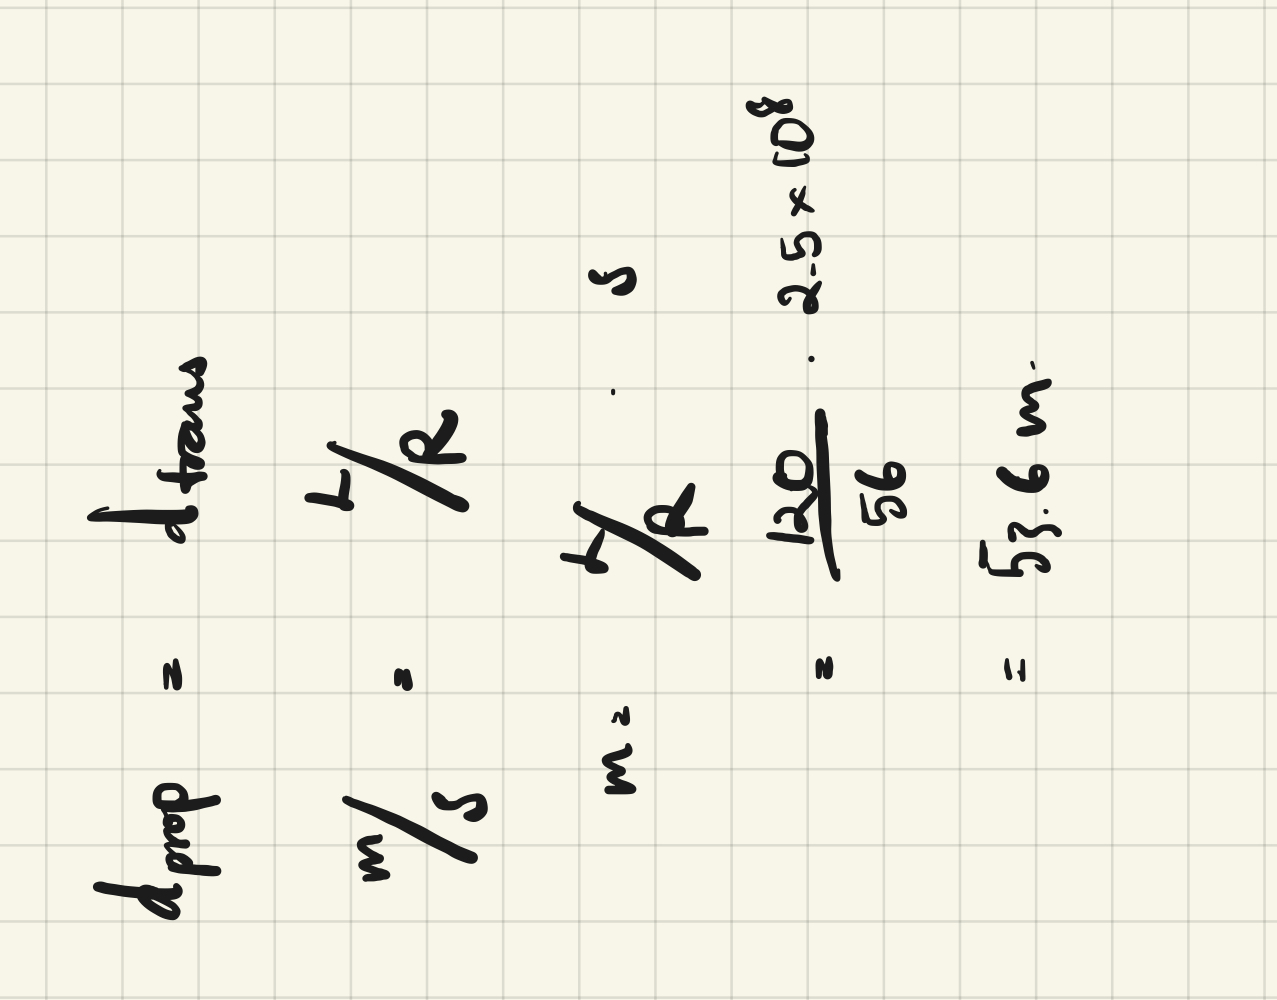 d prop = d trans
m/s = L/R
m = L/R · s
= 120/56 · 2.5 × 10^8
= 53.6 m.